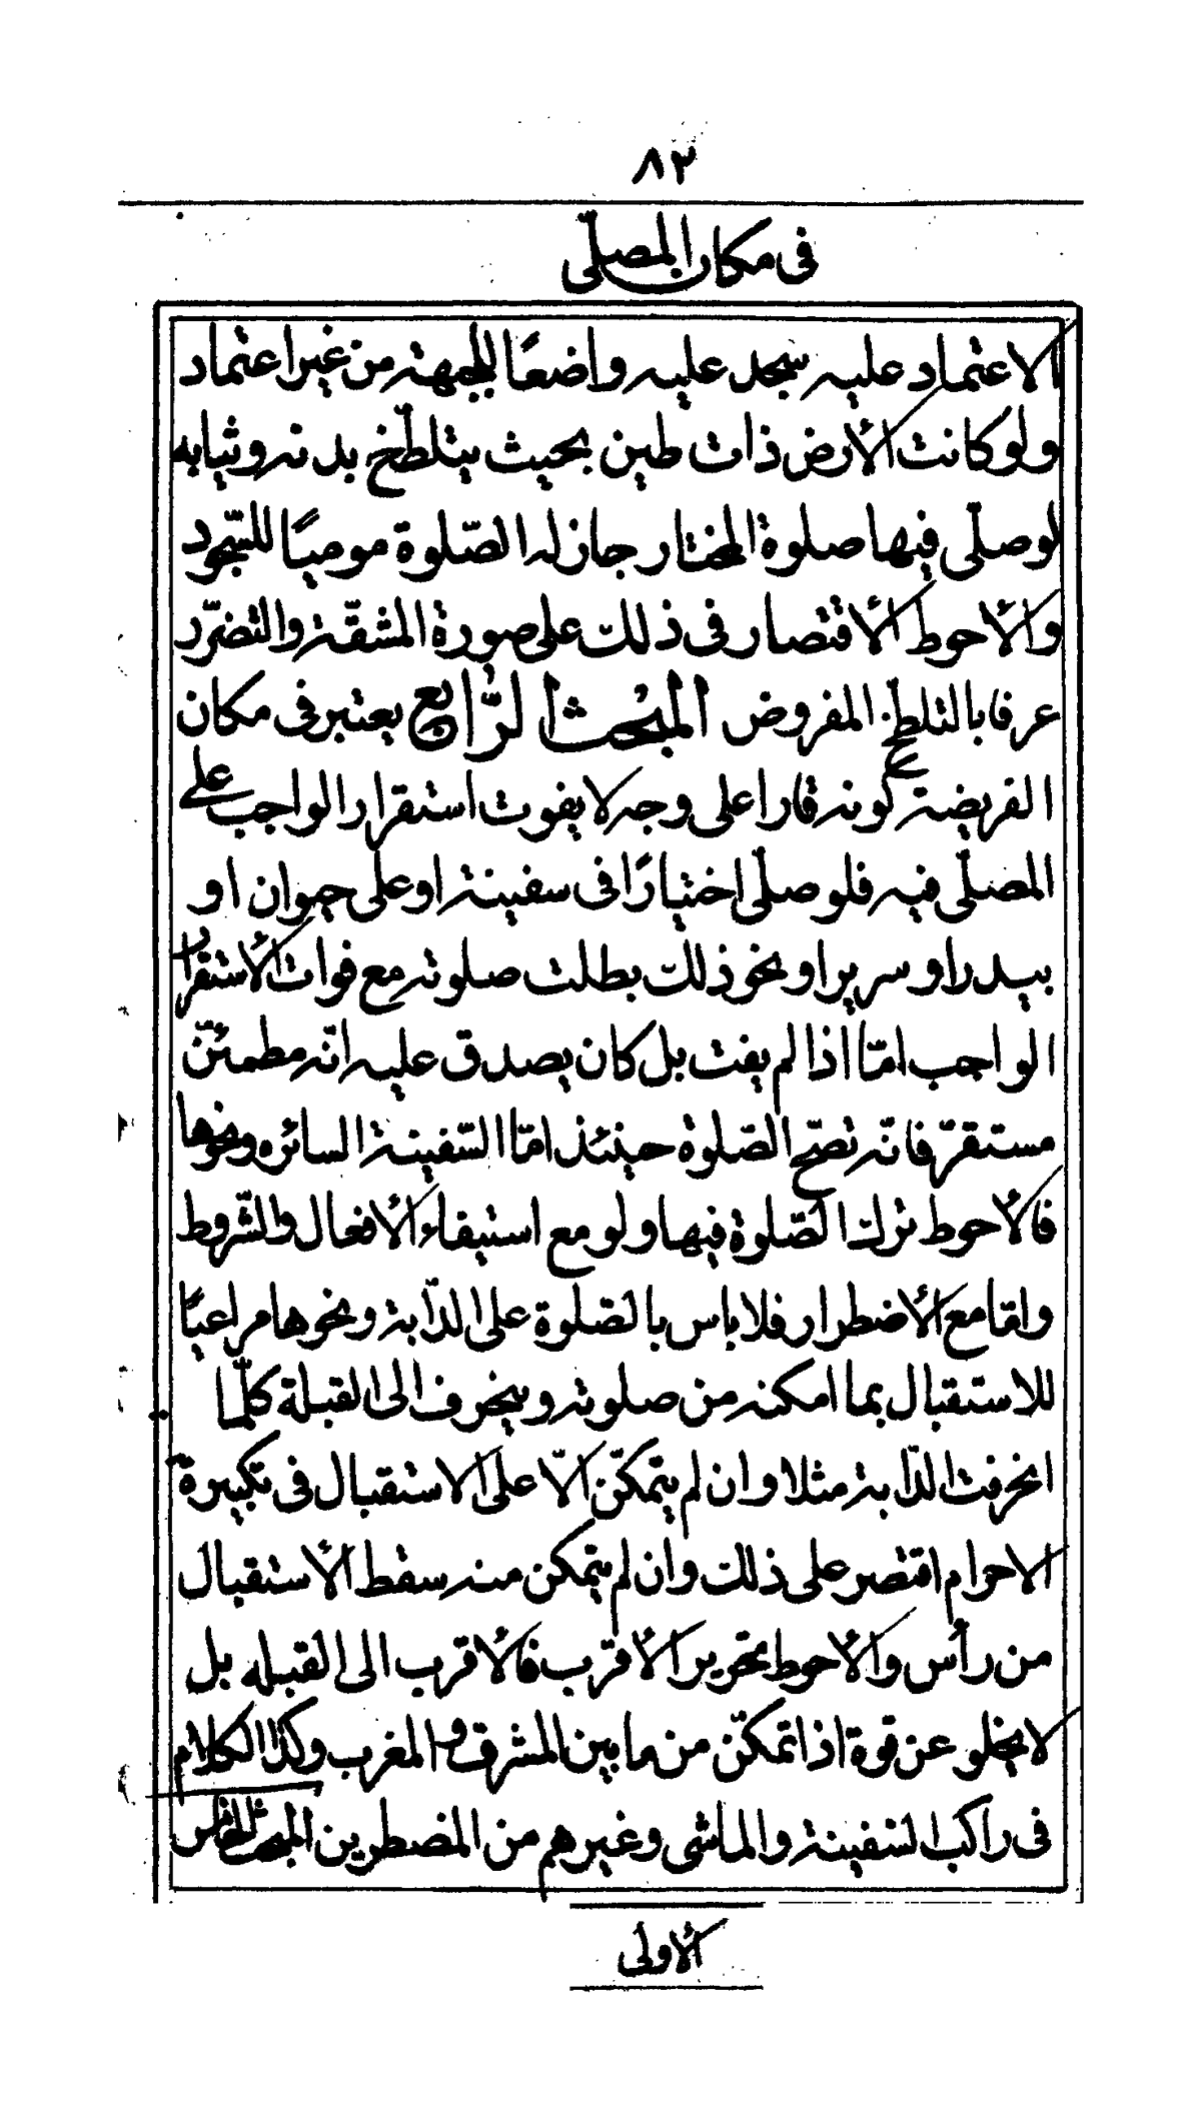 ٨٢
فى مكان المصلّى
الاعتماد عليه سجد عليه واضعًا للجبهة من غير اعتماد
ولو كانت الأرض ذات طين بحيث يتلطّخ بدنه وثيابه
لو صلّى فيها صلوة المختار جاز له الصّلوة موميًا للسّجود
والأحوط الأقتصار فى ذلك على صورة المشقّة والتضرّر
عرفا بالتلطّخ المفروض المبحث الرّابع يعتبر فى مكان
الفريضة كونه قارا على وجه لا يفوت استقرار الواجب على
المصلّى فيه فلو صلّى اختيارًا فى سفينة او على حيوان او
بيدر او سرير او نحو ذلك بطلت صلوته مع فوات الأستقرار
الواجب امّا اذا لم يفت بل كان يصدق عليه انّه مطمئنّ
مستقرّ فانّه تصّح الصّلوة حينئذ امّا السّفينة السائره ونحوها
فالأحوط ترك الصّلوة فيها ولو مع استيفاء الأفعال والشّروط
وامّا مع الأضطرار فلا باس بالصّلوة على الدّابة ونحوها مراعيًا
للاستقبال بما امكنه من صلوته وينحرف الى القبلة كلّما
انحرفت الدّابة مثلا وان لم يتمكّن الّا على الاستقبال فى تكبيرة
الاحرام اقتصر على ذلك وان لم يتمكن منه سقط الأستقبال
من رأس والأحوط تحرير الأقرب فالأقرب الى القبله بل
لا يخلو عن قوة اذا تمكّن من ما بين المشرق والمغرب وكذا الكلام
فى راكب السّفينة والماشى وغيرهم من المضطرين المبحث الخامس
الأولى